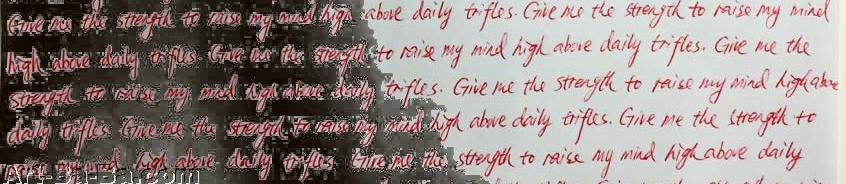 Give me the strength to raise my mind high above daily trifles. Give me the strength to raise my mind
high above daily trifles. Give me the strength to raise my mind high above daily trifles. Give me the
strength to raise my mind high above daily trifles. Give me the strength to raise my mind high above
daily trifles. Give me the strength to raise my mind high above daily trifles. Give me the strength to
raise my mind high above daily trifles. Give me the strength to raise my mind high above daily
Art-Ba-Ba.com